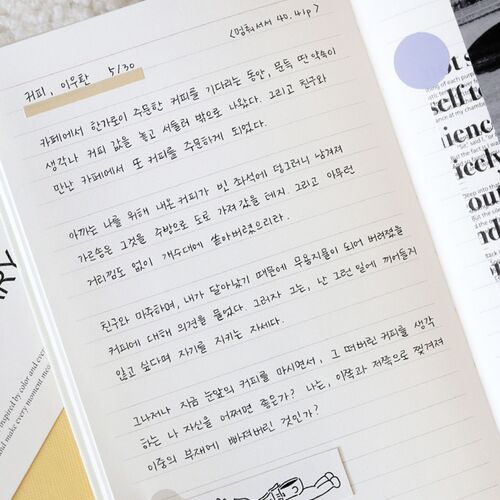 <멈춰서서 40.41p>
커피, 이우환 5/30
카페에서 한가로이 주문한 커피를 기다리는 동안, 문득 딴 약속이
생각나 커피 값을 놓고 서둘러 밖으로 나왔다. 그리고 친구와
만난 카페에서 또 커피를 주문하게 되었다.
아까는 나를 위해 내온 커피가 빈 좌석에 덩그러니 남겨져
가르송은 그것을 주방으로 도로 가져갔을 테지. 그리고 아무런
거리낌도 없이 개수대에 쏟아버렸으리라.
친구와 마주하며, 내가 달아났기 때문에 무용지물이 되어 버려졌을
커피에 대해 의견을 물었다. 그러자 그는, 난 그런 일에 끼어들지
않고 싶다며 자기를 지키는 자세다.
그나저나 지금 눈앞의 커피를 마시면서, 그 떠버린 커피를 생각
하는 나 자신을 어쩌면 좋은가? 나는, 이쪽과 저쪽으로 찢겨져
이중의 부재에 빠져버린 것인가?
inspired by color and every
and make every moment
not s
self to
ience
feely
ou